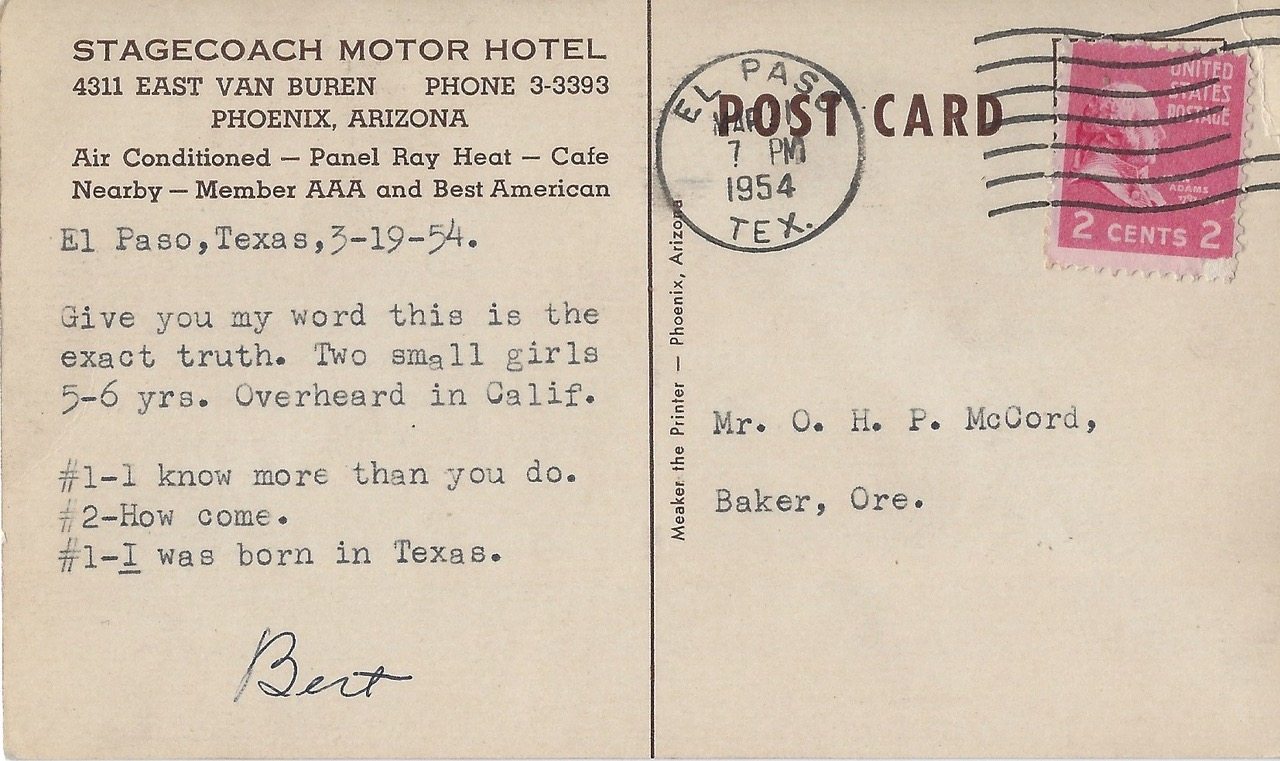 STAGECOACH MOTOR HOTEL
4311 EAST VAN BUREN PHONE 3-3393
PHOENIX, ARIZONA
Air Conditioned — Panel Ray Heat — Cafe
Nearby — Member AAA and Best American
El Paso,Texas,3-19-54.
Give you my word this is the
exact truth. Two small girls
5-6 yrs. Overheard in Calif.
#1-I know more than you do.
#2-How come.
#1-I was born in Texas.
Bert
Meaker the Printer — Phoenix, Arizona
POST CARD
EL PASO
MAR
7 PM
1954
TEX.
UNITED
STATES
POSTAGE
ADAMS
2 CENTS 2
Mr. O. H. P. McCord,
Baker, Ore.